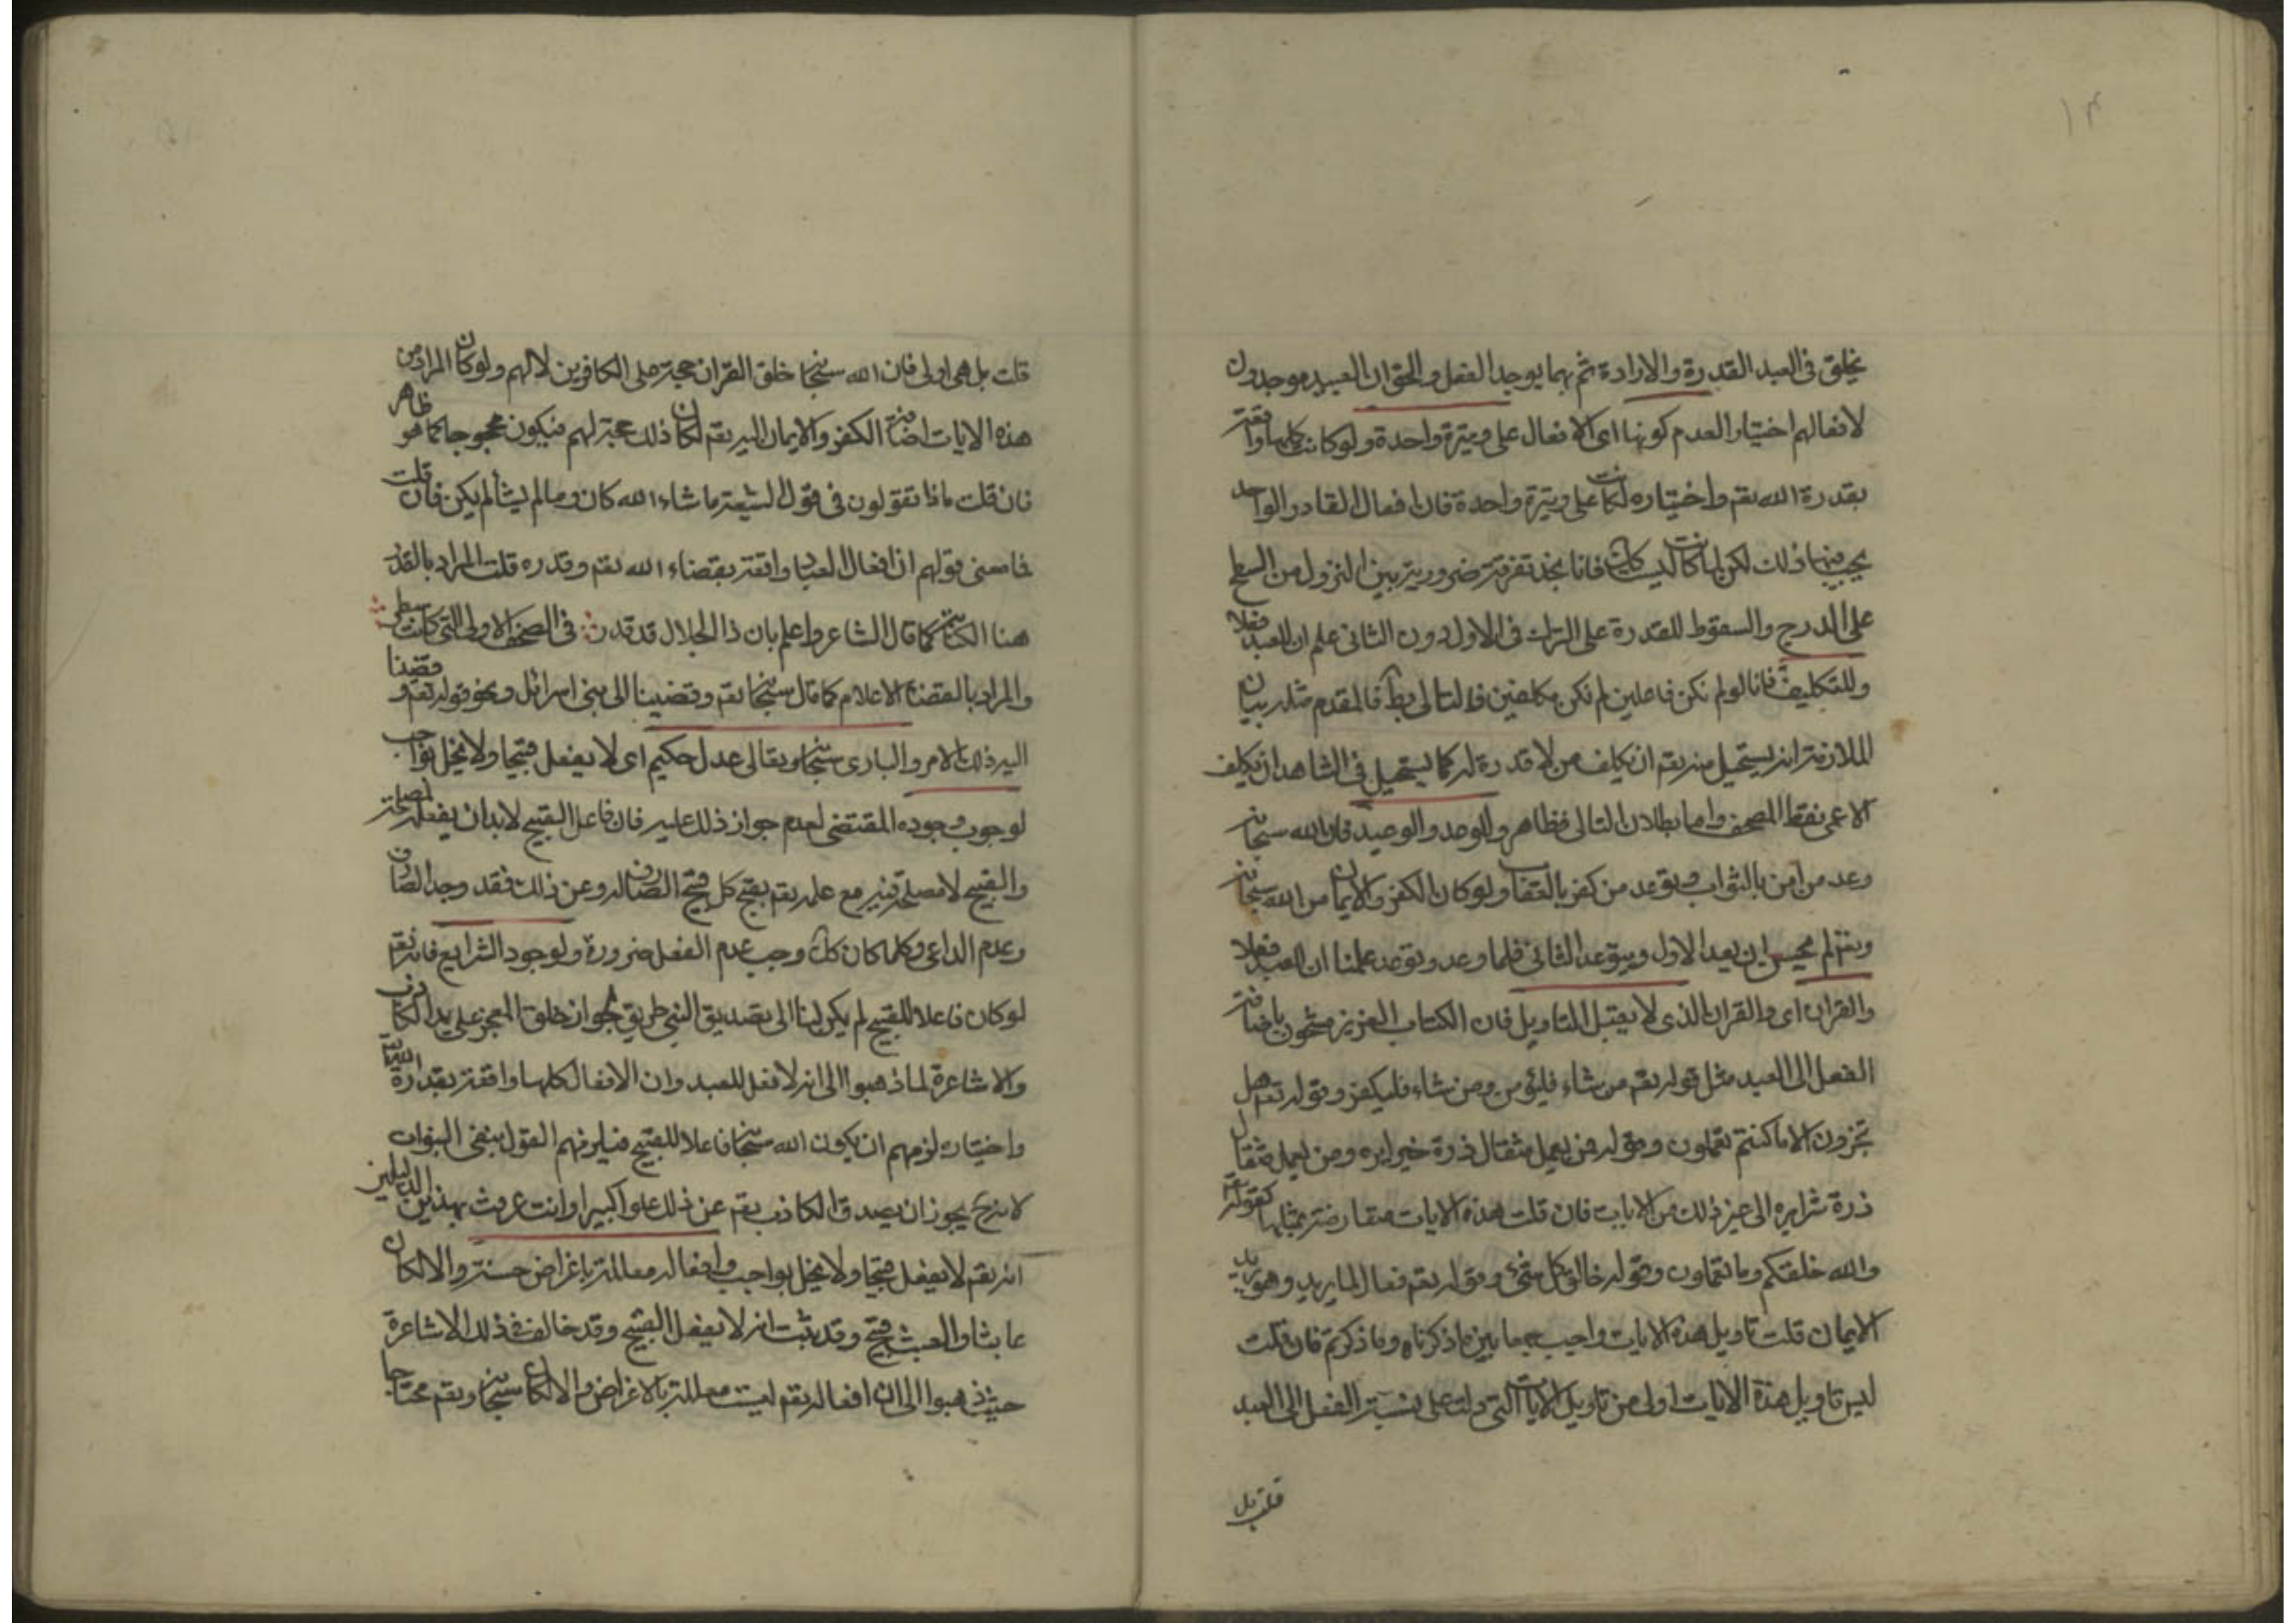 ١٣
يخلق فى العبد القدرة والارادة ثم بهما يوجد الفعل والحق ان العبيد موجدون
لافعالهم اختيارا لعدم كونها اى الافعال على وتيرة واحدة ولو كانت كلها واقعة
بقدرة الله تعم واختياره لكانت على وتيرة واحدة فان افعال القادر الواحد
يجب فيها ذلك لكن لما كانت ليست كك فانا نجد تفرقة ضرورية بين النزول من السطح
على الدرج والسقوط للقدرة على الترك فى الاول دون الثانى علم ان للعبد فعلا
وللتكليف فانا لو لم نكن فاعلين لم نكن مكلفين فالتالى بط فالمقدم مثله بيان
الملازمة انه يستحيل منه تعم ان يكلف من لا قدرة له كما يستحيل فى الشاهد ان يكلف
الاعمى نقط المصحف واما بطلان التالى فظاهر وللوعد والوعيد فان الله سبحانه
وعد من آمن بالثواب وتوعد من كفر بالعقاب ولو كان الكفر والايمان من الله سبحانه
وتعم لم يحسن ان يعد الاول ويتوعد الثانى فلما وعد وتوعد علمنا ان للعبد فعلا
والقران اى وللقران الذى لا يقبل التاويل فان الكتاب العزيز مشحون باضافة
الفعل الى العبد مثل قوله تعم من شاء فليؤمن ومن شاء فليكفر وقوله تعم هل
تجزون الا ما كنتم تعملون وقوله فمن يعمل مثقال ذرة خيرا يره ومن يعمل مثقال
ذرة شرا يره الى غير ذلك من الايات فان قلت هذه الايات معارضة بمثلها كقوله تعم
والله خلقكم وما تعملون وقوله خالق كل شئ وقوله تعم فعال لما يريد وهو يريد
الايمان قلت تاويل هذه الايات واجب جمعا بين ما ذكرناه وما ذكرتم فان قلت
ليس تاويل هذه الايات اولى من تاويل الايات التى دلت على نسبة الفعل الى العبد
قلت بل
قلت بل هى اولى فان الله سبحانه خلق القران حجة على الكافرين لا لهم ولو كان المراد من
هذه الايات اضافة الكفر والايمان اليه تعم لكان ذلك حجة لهم فيكون محجوجا كما هو ظاهر
فان قلت ماذا تقولون فى قول الشيعة ما شاء الله كان وما لم يشأ لم يكن فان قلت
فما معنى قولهم ان افعال العباد واقعة بقضاء الله تعم وقدره قلت المراد بالقدر
هنا الكتابة كما قال الشاعر واعلم بان ذا الجلال قد قدر فى الصحف الاولى التى كانت سطر
والمراد بالقضاء الاعلام كما قال سبحانه تعم وقضينا الى بنى اسرائل ونحو قوله تعم وقضينا
اليه ذلك الامر والبارى سبحانه وتعالى عدل حكيم اى لا يفعل قبيحا ولا يخل بواجب
لوجوب وجوده المقتضى لعدم جواز ذلك عليه فان فاعل القبيح لا بد ان يفعله لمصلحة
والقبيح لا مصلحة فيه مع علمه تعم بقبح كل قبيح الصارف له وعن ذلك فقد وجد الصارف
وعدم الداعى وكلما كان كك وجب عدم الفعل ضرورة ولوجود الشرايع فانه تعم
لو كان فاعلا للقبيح لم يكن لنا الى تصديق النبى طريق لجواز خلق المعجز على يد الكاذب
والاشاعرة لما ذهبوا الى انه لا فعل للعبد وان الافعال كلها واقعة بقدرة الله تعم
واختياره لزمهم ان يكون الله سبحانه فاعلا للقبيح فيلزمهم القول بنفى النبوات
لانه ح يجوز ان يصدق الكاذب تعم عن ذلك علوا كبيرا وانت عرفت بهذين الدليلين
انه تعم لا يفعل قبيحا ولا يخل بواجب وافعاله معللة باغراض حسنة والا لكان
عابثا والعبث قبيح وقد ثبت انه لا يفعل القبيح وقد خالف فى ذلك الاشاعرة
حيث ذهبوا الى ان افعاله تعم ليست معللة بالاغراض والا لكان سبحانه وتعم محتاجا